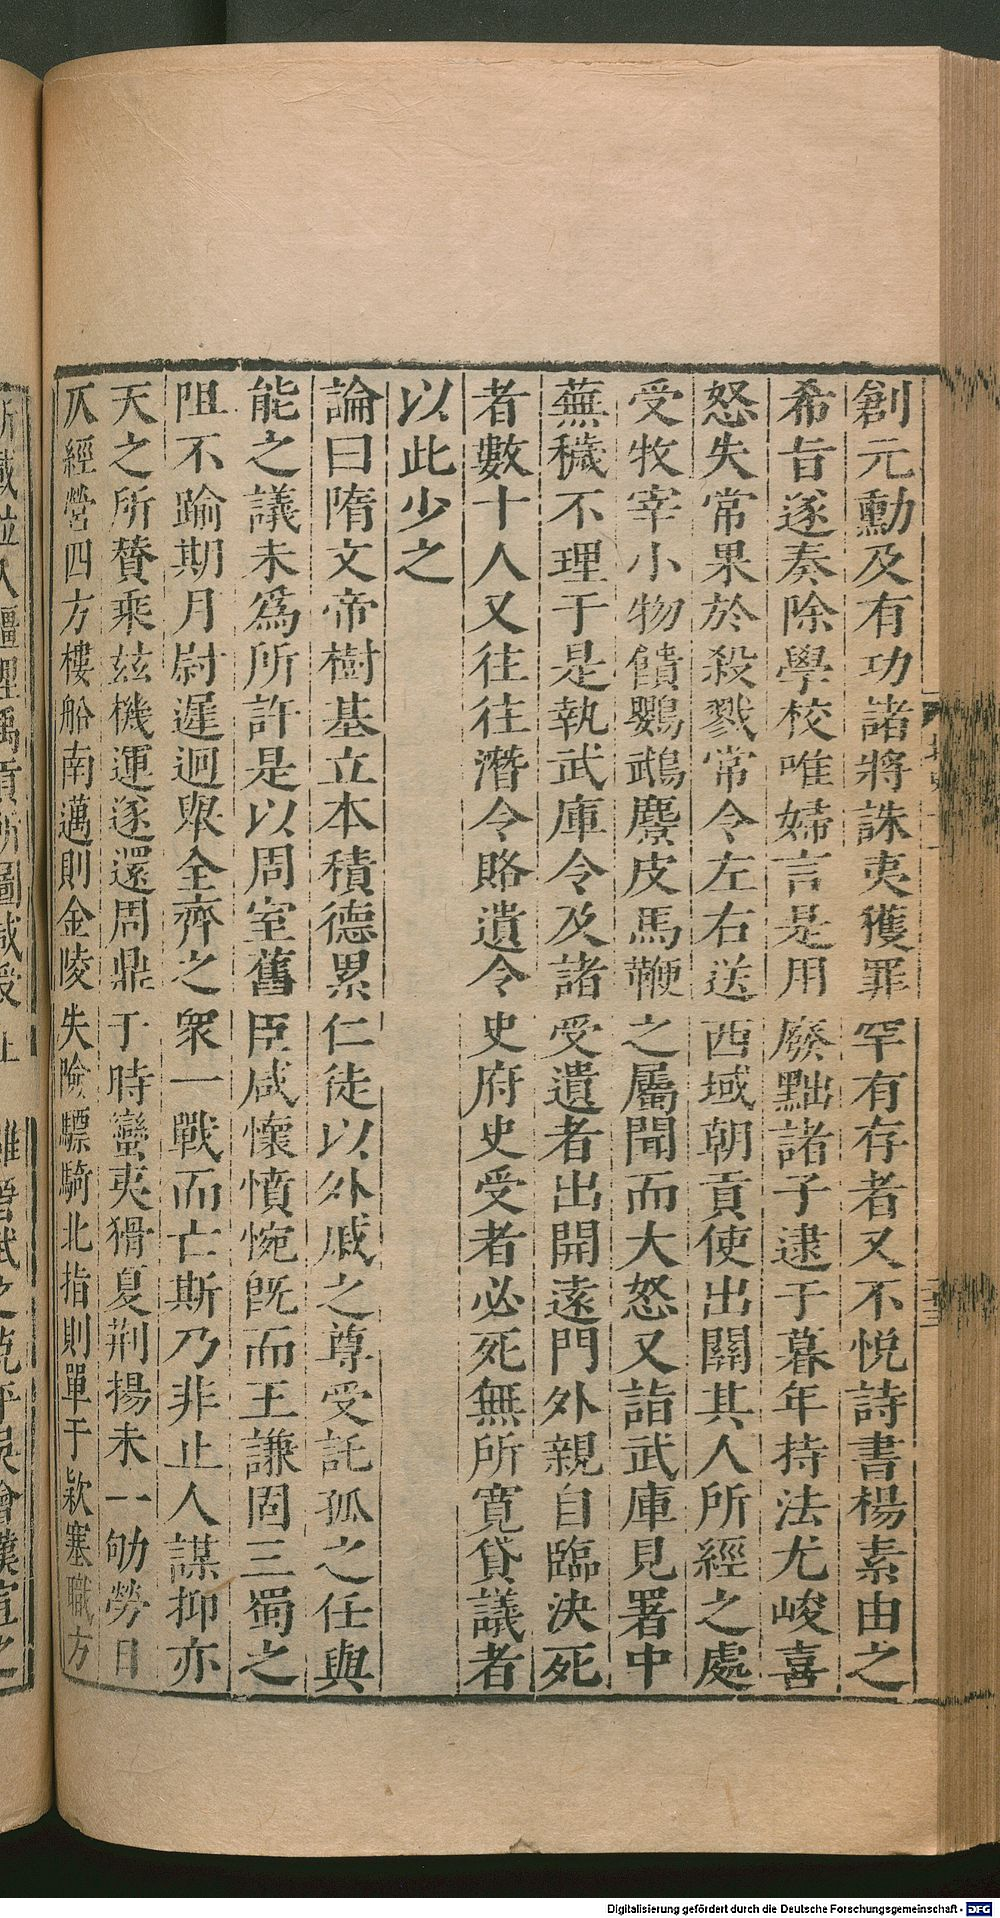 創元勳及有功諸將誅夷獲罪罕有存者又不悅詩書楊素由之
希旨遂奏除學校唯婦言是用廢黜諸子逮于暮年持法尤峻喜
怒失常果於殺戮常令左右送西域朝貢使出關其人所經之處
受牧宰小物饋鸚鵡麖皮馬鞭之屬聞而大怒又詣武庫見署中
蕪穢不理于是執武庫令及諸受遺者出開遠門外親自臨決死
者數十人又往往潛令賂遺令史府史受者必死無所寬貸議者
以此少之
論曰隋文帝樹基立本積德累仁徒以外戚之尊受託孤之任與
能之議未爲所許是以周室舊臣咸懷憤惋旣而王謙固三蜀之
阻不踰期月尉遲迥舉全齊之衆一戰而亡斯乃非止人謀抑亦
天之所贊乘茲機運遂還周鼎于時蠻夷猾夏荆揚未一劬勞日
仄經營四方樓船南邁則金陵失險驃騎北指則單于欵塞職方
Digitalisierung gefördert durch die Deutsche Forschungsgemeinschaft - DFG